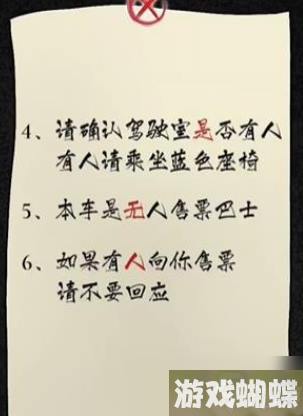 4、请确认驾驶室是否有人
有人请乘坐蓝色座椅
5、本车是无人售票巴士
6、如果有人向你售票
请不要回应
游戏蝴蝶